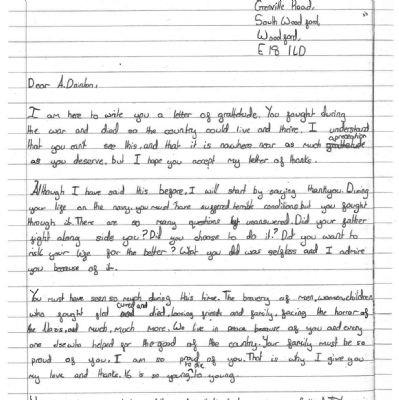 Grenville Road,
South Woodford,
Woodford,
E18 1LD
Dear A.Dainton,
I am here to write you a letter of grattetude. You fought during
the war and died so the country could live and thrive. I understand
that you cant see this, and that it is nowhere near as much appreceation
as you deserve, but I hope you accept my letter of thanks.
Although I have said this before, I will start by saying thankyou. During
your life on the navy, you must have suffered terrible conditions but you fought
through it. There are so many questions left unanswered. Did your father
fight along side you? Did you choose to do it? Did you want to
risk your life for the better? What you did was selfless and I admire
you because of it.
You must have seen so much during this time. The bravery of men, women, children
who fought and died, loosing friends and family, facing the horror of
the Nazis, and much, much more. We live in peace because of you and every
one else who helped for the good of the country. Your family must be so
proud of you. I am so proud of you. That is why I give you
my love and thanks. 16 is so young to die